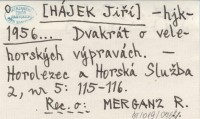 [HÁJEK Jiří] -hjk-
1956... Dvakrát o vele-
horských výpravách. -
Horolezec a Horská Služba
2, nr 5: 115-116.
Rec. o: MERGANZ R.